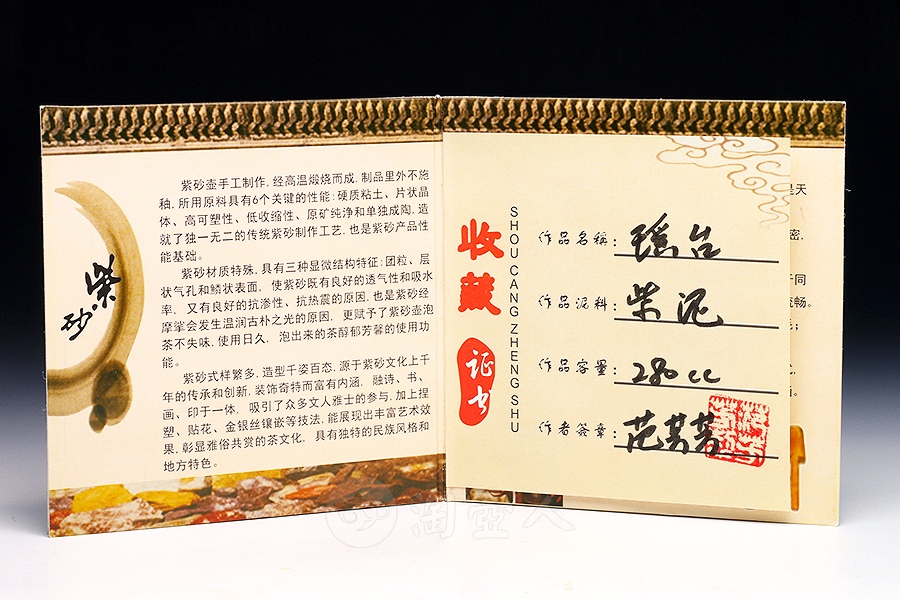 紫砂
紫砂壶手工制作，经高温煅烧而成，制品里外不施
釉，所用原料具有6个关键的性能：硬质粘土、片状晶
体、高可塑性、低收缩性、原矿纯净和单独成陶，造
就了独一无二的传统紫砂制作工艺，也是紫砂产品性
能基础。
紫砂材质特殊，具有三种显微结构特征：团粒、层
状气孔和鳞状表面，使紫砂既有良好的透气性和吸水
率，又有良好的抗渗性、抗热震的原因，也是紫砂经
摩挲会发生温润古朴之光的原因，更赋予了紫砂壶泡
茶不失味，使用日久，泡出来的茶醇郁芳馨的使用功
能。
紫砂式样繁多，造型千姿百态，源于紫砂文化上千
年的传承和创新，装饰奇特而富有内涵，融诗、书、
画、印于一体，吸引了众多文人雅士的参与，加上捏
塑、贴花、金银丝镶嵌等技法，能展现出丰富艺术效
果，彰显雅俗共赏的茶文化，具有独特的民族风格和
地方特色。
收藏证书
SHOU CANG ZHENG SHU
作品名称：瑶台
作品泥料：紫泥
作品容量：280cc
作者签章：范芳芳
是天
密，
同
畅。
淘壶人